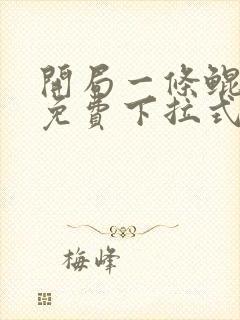 開局一條鯤
免費下拉式
梅峰